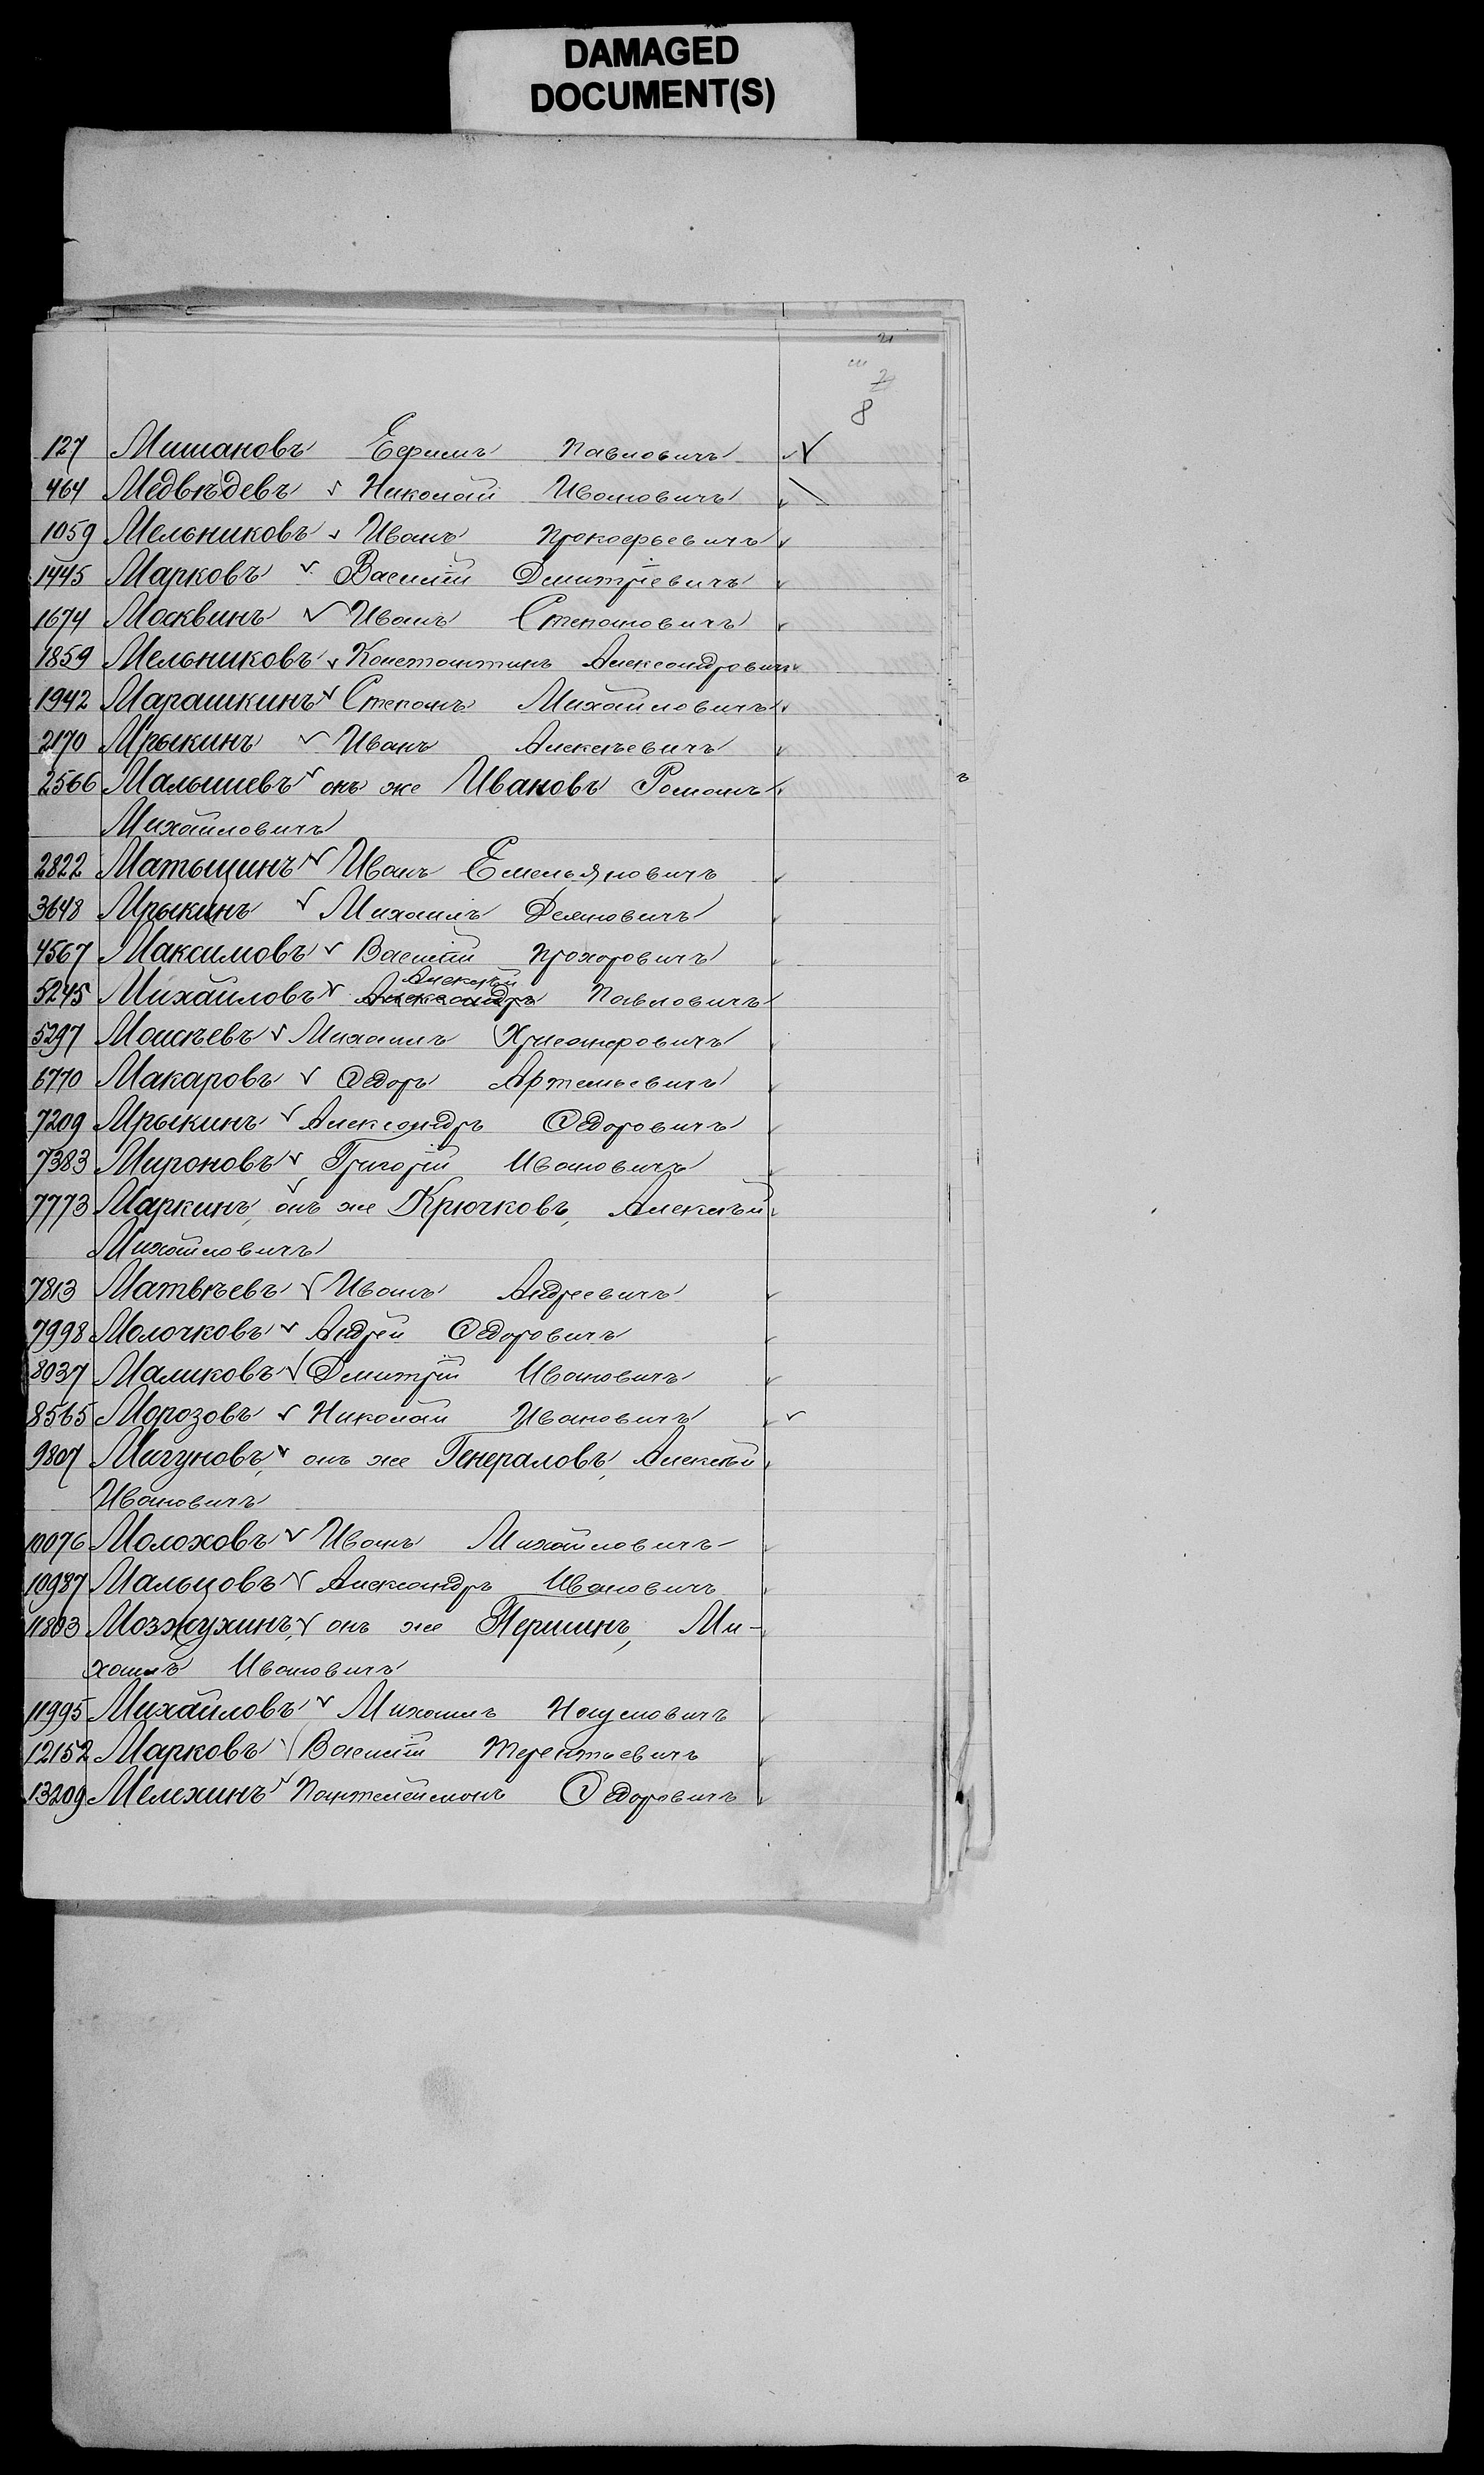 DAMAGED
DOCUMENT(S)
8
127 Мишановъ Ефимъ Павловичъ
464 Медвѣдевъ Николай Ивановичъ
1059 Мельниковъ Иванъ Прокофьевичъ
1445 Марковъ Василій Дмитріевичъ
1674 Москвинъ Иванъ Степановичъ
1859 Мельниковъ Константинъ Александровичъ
1942 Марашкинъ Степанъ Михайловичъ
2170 Мрыкинъ Иванъ Алексѣевичъ
2566 Малышевъ онъ же Ивановъ Романъ
Михайловичъ
2822 Матыцинъ Иванъ Емельяновичъ
3648 Мрыкинъ Михаилъ Деяновичъ
4567 Максимовъ Василій Прохоровичъ
Алексѣй
5245 Михайловъ Александръ Павловичъ
5297 Моисѣевъ Михаилъ Хрисанфовичъ
6770 Макаровъ Ѳедоръ Артемьевичъ
7209 Мрыкинъ Александръ Ѳедоровичъ
7383 Мироновъ Григорій Ивановичъ
7773 Маркинъ, онъ же Крючковъ, Алексѣй
Михайловичъ
7813 Матвѣевъ Иванъ Андреевичъ
7998 Молочковъ Андрей Ѳедоровичъ
8037 Маликовъ Дмитрій Ивановичъ
8565 Морозовъ Николай Ивановичъ
9807 Мигуновъ, онъ же Генераловъ, Алексѣй
Ивановичъ
10076 Молоховъ Иванъ Михайловичъ
10987 Мальцовъ Александръ Ивановичъ
11803 Мозжухинъ, онъ же Першинъ, Ми-
хаилъ Ивановичъ
11995 Михайловъ Михаилъ Наумовичъ
12152 Марковъ Василій Терентьевичъ
13209 Мелехинъ Пантелеймонъ Ѳедоровичъ